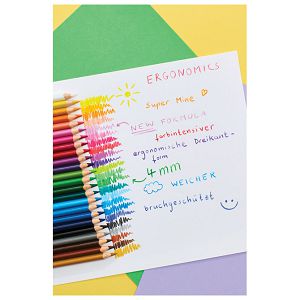 ERGONOMICS
Super Mine
NEW FORMULA
farbintensiver
ergonomische Dreikant-
form
4mm
WEICHER
bruchgeschützt